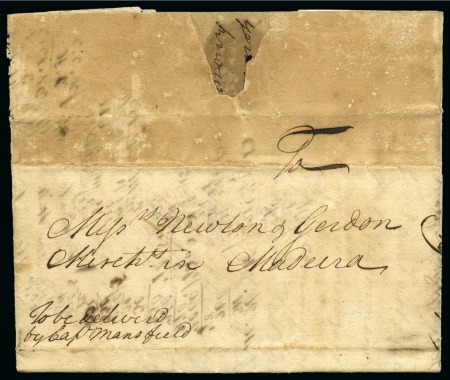 your
known
To
Messrs. Newton & Gordon
Merchts. in Madeira
To be deliverd
by Cap Mansfield